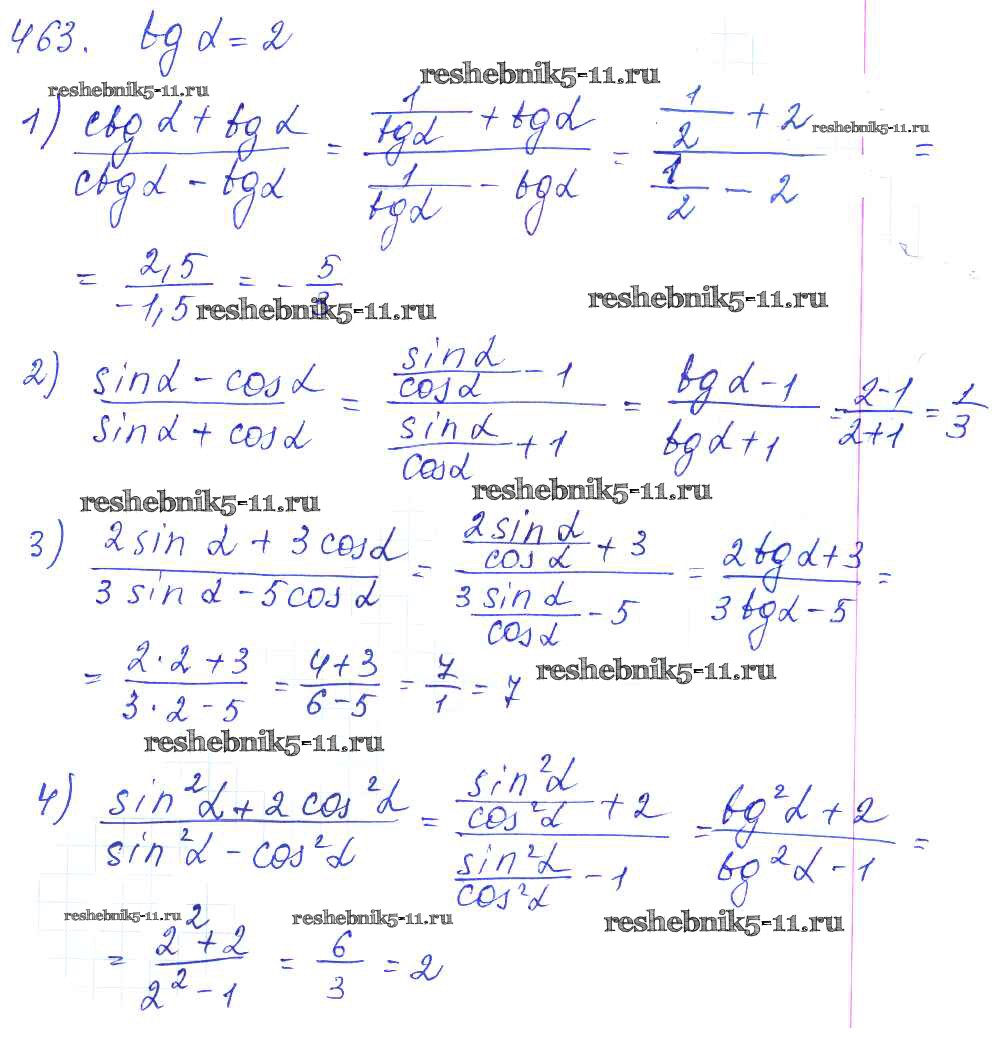 463. tg α = 2
reshebnik5-11.ru reshebnik5-11.ru
1) (ctg α + tg α)/(ctg α − tg α) = (1/tg α + tg α)/(1/tg α − tg α) = (1/2 + 2)/(1/2 − 2) =
reshebnik5-11.ru
= 2,5/−1,5 = −5/3
reshebnik5-11.ru reshebnik5-11.ru
2) (sin α − cos α)/(sin α + cos α) = (sin α/cos α − 1)/(sin α/cos α + 1) = (tg α − 1)/(tg α + 1) = (2−1)/(2+1) = 1/3
reshebnik5-11.ru reshebnik5-11.ru
3) (2 sin α + 3 cos α)/(3 sin α − 5 cos α) = (2 sin α/cos α + 3)/(3 sin α/cos α − 5) = (2 tg α + 3)/(3 tg α − 5) =
= (2·2 + 3)/(3·2 − 5) = (4+3)/(6−5) = 7/1 = 7
reshebnik5-11.ru
reshebnik5-11.ru
4) (sin²α + 2 cos²α)/(sin²α − cos²α) = (sin²α/cos²α + 2)/(sin²α/cos²α − 1) = (tg²α + 2)/(tg²α − 1) =
reshebnik5-11.ru reshebnik5-11.ru reshebnik5-11.ru
= (2² + 2)/(2² − 1) = 6/3 = 2